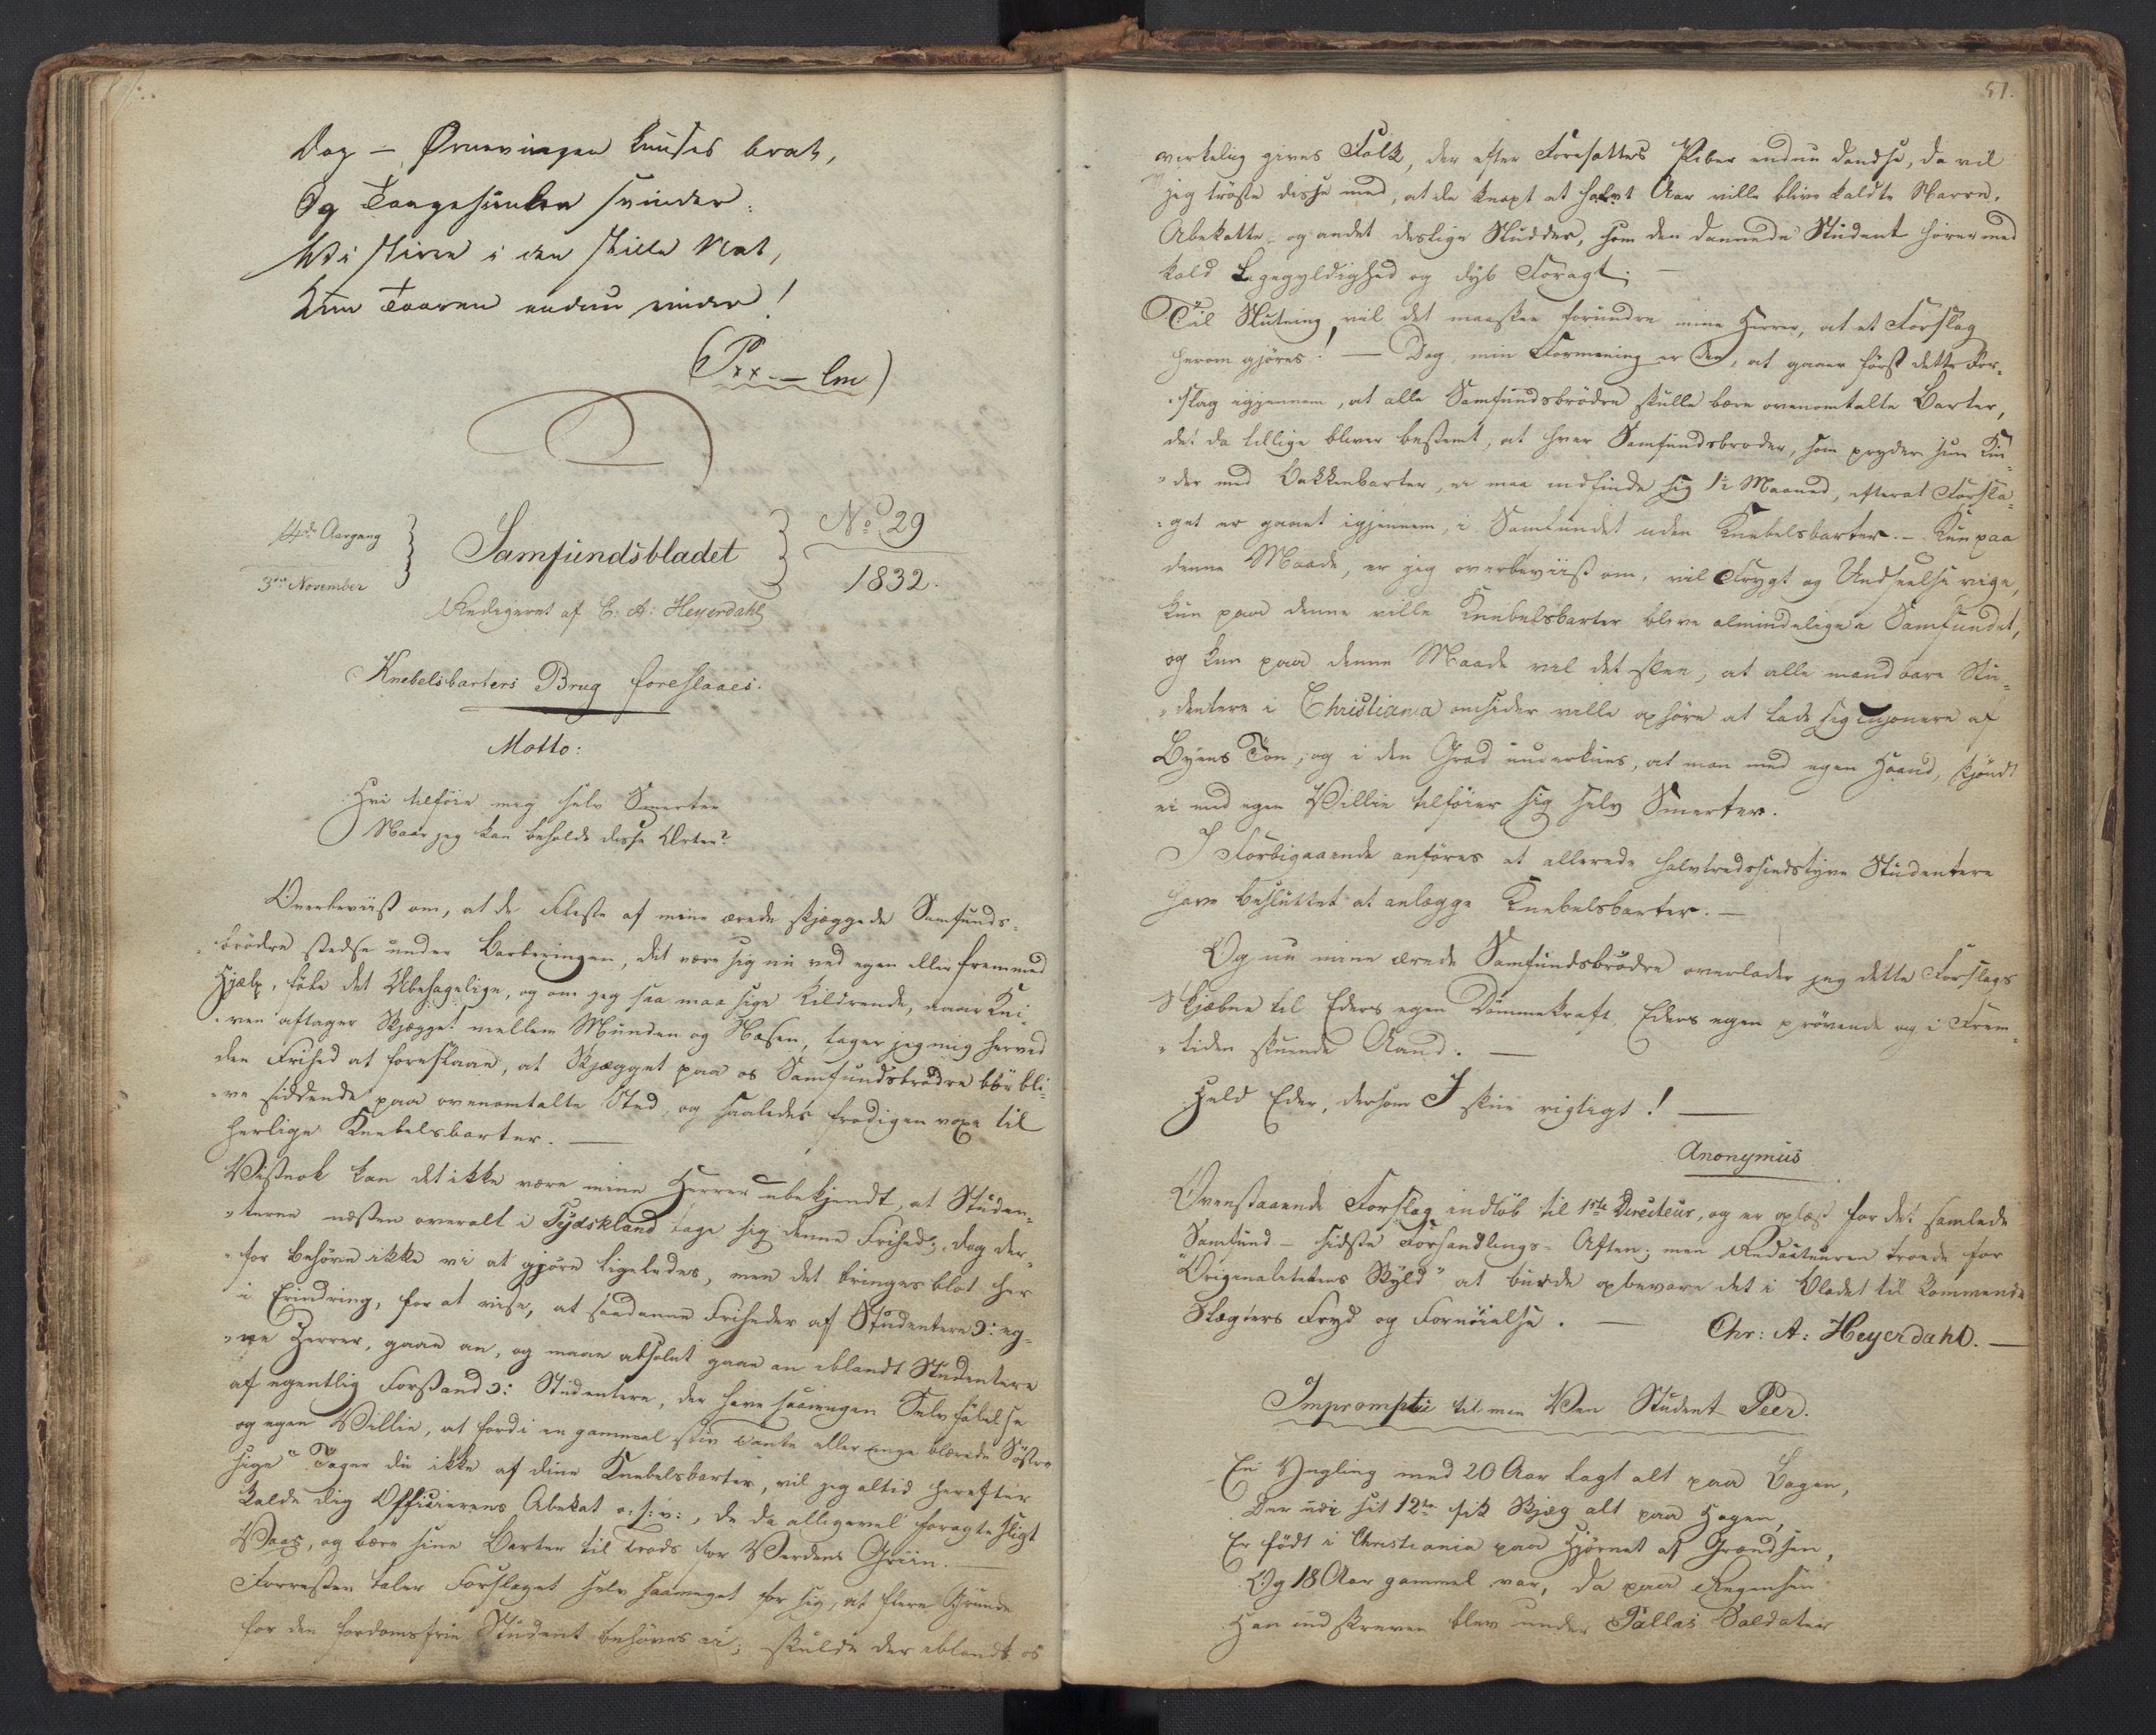 Dog – Ørnevingen knuses brat,
Og Taagehimlen svinder.
Vi stirre i den stille Nat,
Kun Taaren endnu rinder!
(Pxx – lm)
4de Aargang
3die November
Samfundsbladet
No 29
1832.
Redigeret af C. A: Heyerdahl
Knebelsbarters Brug foreslaaes.
Motto:
Hvi tilföie mig selv Smerter
Naar jeg kan beholde disse Urter?
Overbeviist om, at de Fleste af mine ærede skjæggede Samfunds-
brödre stedse under Barberingen, det være sig nu ved egen eller fremmed
Hjælp, föle det Ubehagelige, og om jeg saa maa sige kildrende, naar Kni-
ven aftager Skjægget mellem Munden og Næsen, tager jeg mig herved
den Frihed at foreslaae, at Skjægget paa os Samfundsbrödre bör bli-
ve siddende paa ovenomtalte Sted, og saaledes frodigen voxe til
herlige Knebelsbarter. —
Vistnok kan det ikke være mine Herrer ubekjendt, at Studen-
terne næsten overalt i Tydskland tage sig denne Frihed; dog der-
for behöve ikke vi at gjöre ligeledes, men det bringes blot her
i Erindring, for at vise, at saadanne Friheder af Studentere ɔ: eg-
ne Herrer, gaae an, og maae absolut gaae an iblandt Studentere
af egentlig Forstand ɔ: Studentere, der have saamegen Selvfölelse
og egen Villie, at fordi en gammel stiv Tante eller unge Söstre
sige "Tager du ikke af dine Knebelsbarter, vil jeg altid herefter
kalde dig Officierens Abekat o: s: v:, de da alligevel foragte sligt
Vaas, og bære sine Barter til Trods for Verdens Griin. —
Forresten taler Forslaget selv saameget for sig, at flere Grunde
for den fordomsfrie Student behöves ei; skulde der iblandt os
51.
virkelig gives Folk, der efter Foresattes Piber endnu dandse, da vil
jeg tröste disse med, at de knapt et halvt Aar ville blive kaldte Narre,
Abekatte og andet deslige Sludder, som den dannede Student hörer med
kold Ligegyldighed og dyb Foragt; —
Til Slutning vil det maaskee forundre mine Herrer, at et Forslag
herom gjöres! — Dog, min Formening er den, at gaaer först dette For-
slag igjennem, at alle Samfundsbrödre skulle bære ovenomtalte Barter,
det da tillige bliver bestemt, at hver Samfundsbroder, som pryder sine Kin-
der med Bakkenbarter, ei maa indfinde sig 1½ Maaned, efterat Forsla-
get er gaaet igjennem, i Samfundet uden Knebelsbarter. – Kun paa
denne Maade, er jeg overbeviist om, vil Frygt og Undseelse vige,
kun paa denne ville Knebelsbarter blive almindelige i Samfundet,
og kun paa denne Maade vil det skee, at alle mandbare Stu-
dentere i Christiania omsider ville ophöre at lade sig cujonere af
Byens Ton, og i den Grad underkues, at man med egen Haand, skjöndt
ei med egen Villie tilföier sig selv Smerter.
I Forbigaaende anföres at allerede halvtredsindstyve Studentere
have besluttet at anlægge Knebelsbarter. —
Og nu mine ærede Samfundsbrödre overlader jeg dette Forslags
Skjæbne til Eders egen Dömmekraft, Eders egen prövende og i Frem-
tiden skuende Aand. —
Held Eder, dersom I skue rigtigt! —
Anonymus
Ovenstaaende Forslag indlöb til 1ste Directeur, og er oplæst for det samlede
Samfund – sidste Forhandlings-Aften; men Redacteuren troede for
"Originalitetens Skyld" at burde opbevare det i Bladet til kommende
Slægters Fryd og Fornöielse. —
Chr: A: Heyerdahl. —
Impromptu til min Ven Student Peer.
En Yngling med 20 Aar lagt alt paa Bagen,
Der udi sit 12te fik Skjæg alt paa Hagen,
Er födt i Christiania paa Hjörnet af Grændsen,
Og 18 Aar gammel var, da paa Regensen
Han indskreven blev under Pallas Soldater